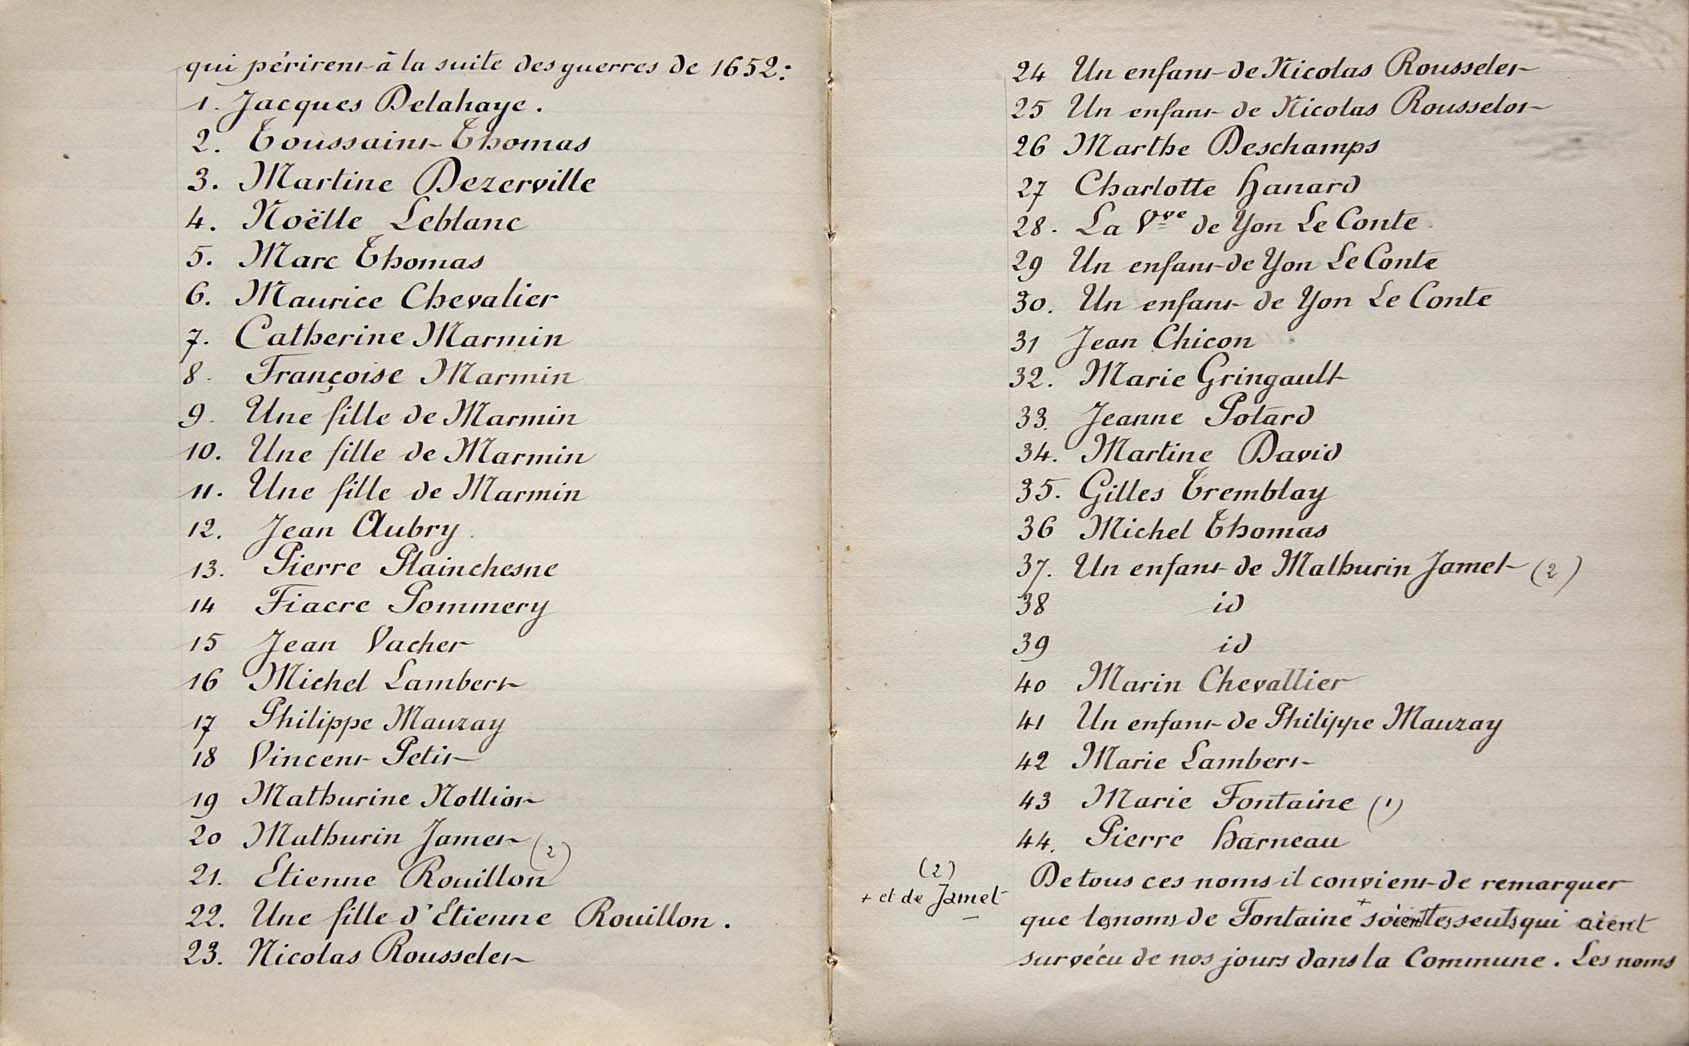 qui périrent à la suite des guerres de 1652:
1. Jacques Delahaye.
2. Toussaint Thomas
3. Martine Dezerville
4. Noëlle Leblanc
5. Marc Thomas
6. Maurice Chevalier
7. Catherine Marmin
8. Françoise Marmin
9. Une fille de Marmin
10. Une fille de Marmin
11. Une fille de Marmin
12. Jean Aubry.
13. Pierre Plainchesne
14 Fiacre Pommery
15 Jean Vacher
16 Michel Lambert
17 Philippe Mauzay
18 Vincent Petit
19 Mathurine Nottiot
20 Mathurin Jamet (2)
21. Etienne Rouillon
22. Une fille d'Etienne Rouillon.
23. Nicolas Rousselet
24 Un enfant de Nicolas Rousselet
25 Un enfant de Nicolas Rousselot
26 Marthe Deschamps
27 Charlotte Hanard
28. La Vve de Yon Le Conte
29 Un enfant de Yon Le Conte
30. Un enfant de Yon Le Conte
31 Jean Chicon
32. Marie Gringault
33. Jeanne Potard
34. Martine David
35. Gilles Tremblay
36 Michel Thomas
37. Un enfant de Mathurin Jamet (2)
38 id
39 id
40 Marin Chevallier
41 Un enfant de Philippe Mauzay
42 Marie Lambert
43 Marie Fontaine (1)
44. Pierre Harneau
(2)
+ et de Jamet
De tous ces noms il convient de remarquer
que les noms de Fontaine + soient les seuls qui aient
survécu de nos jours dans la Commune. Les noms